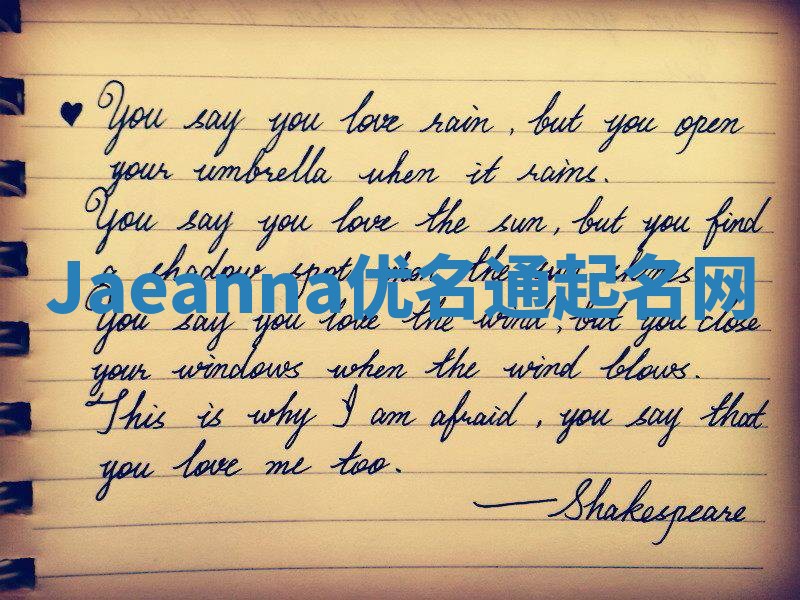 ♥ You say you love rain, but you open
your umbrella when it rains.
You say you love the sun, but you find
a shadow spot when the sun shines
Jaeanna优名通起名网
You say you love the wind, but you close
your windows when the wind blows.
This is why I am afraid, you say that
you love me too.
— Shakespeare